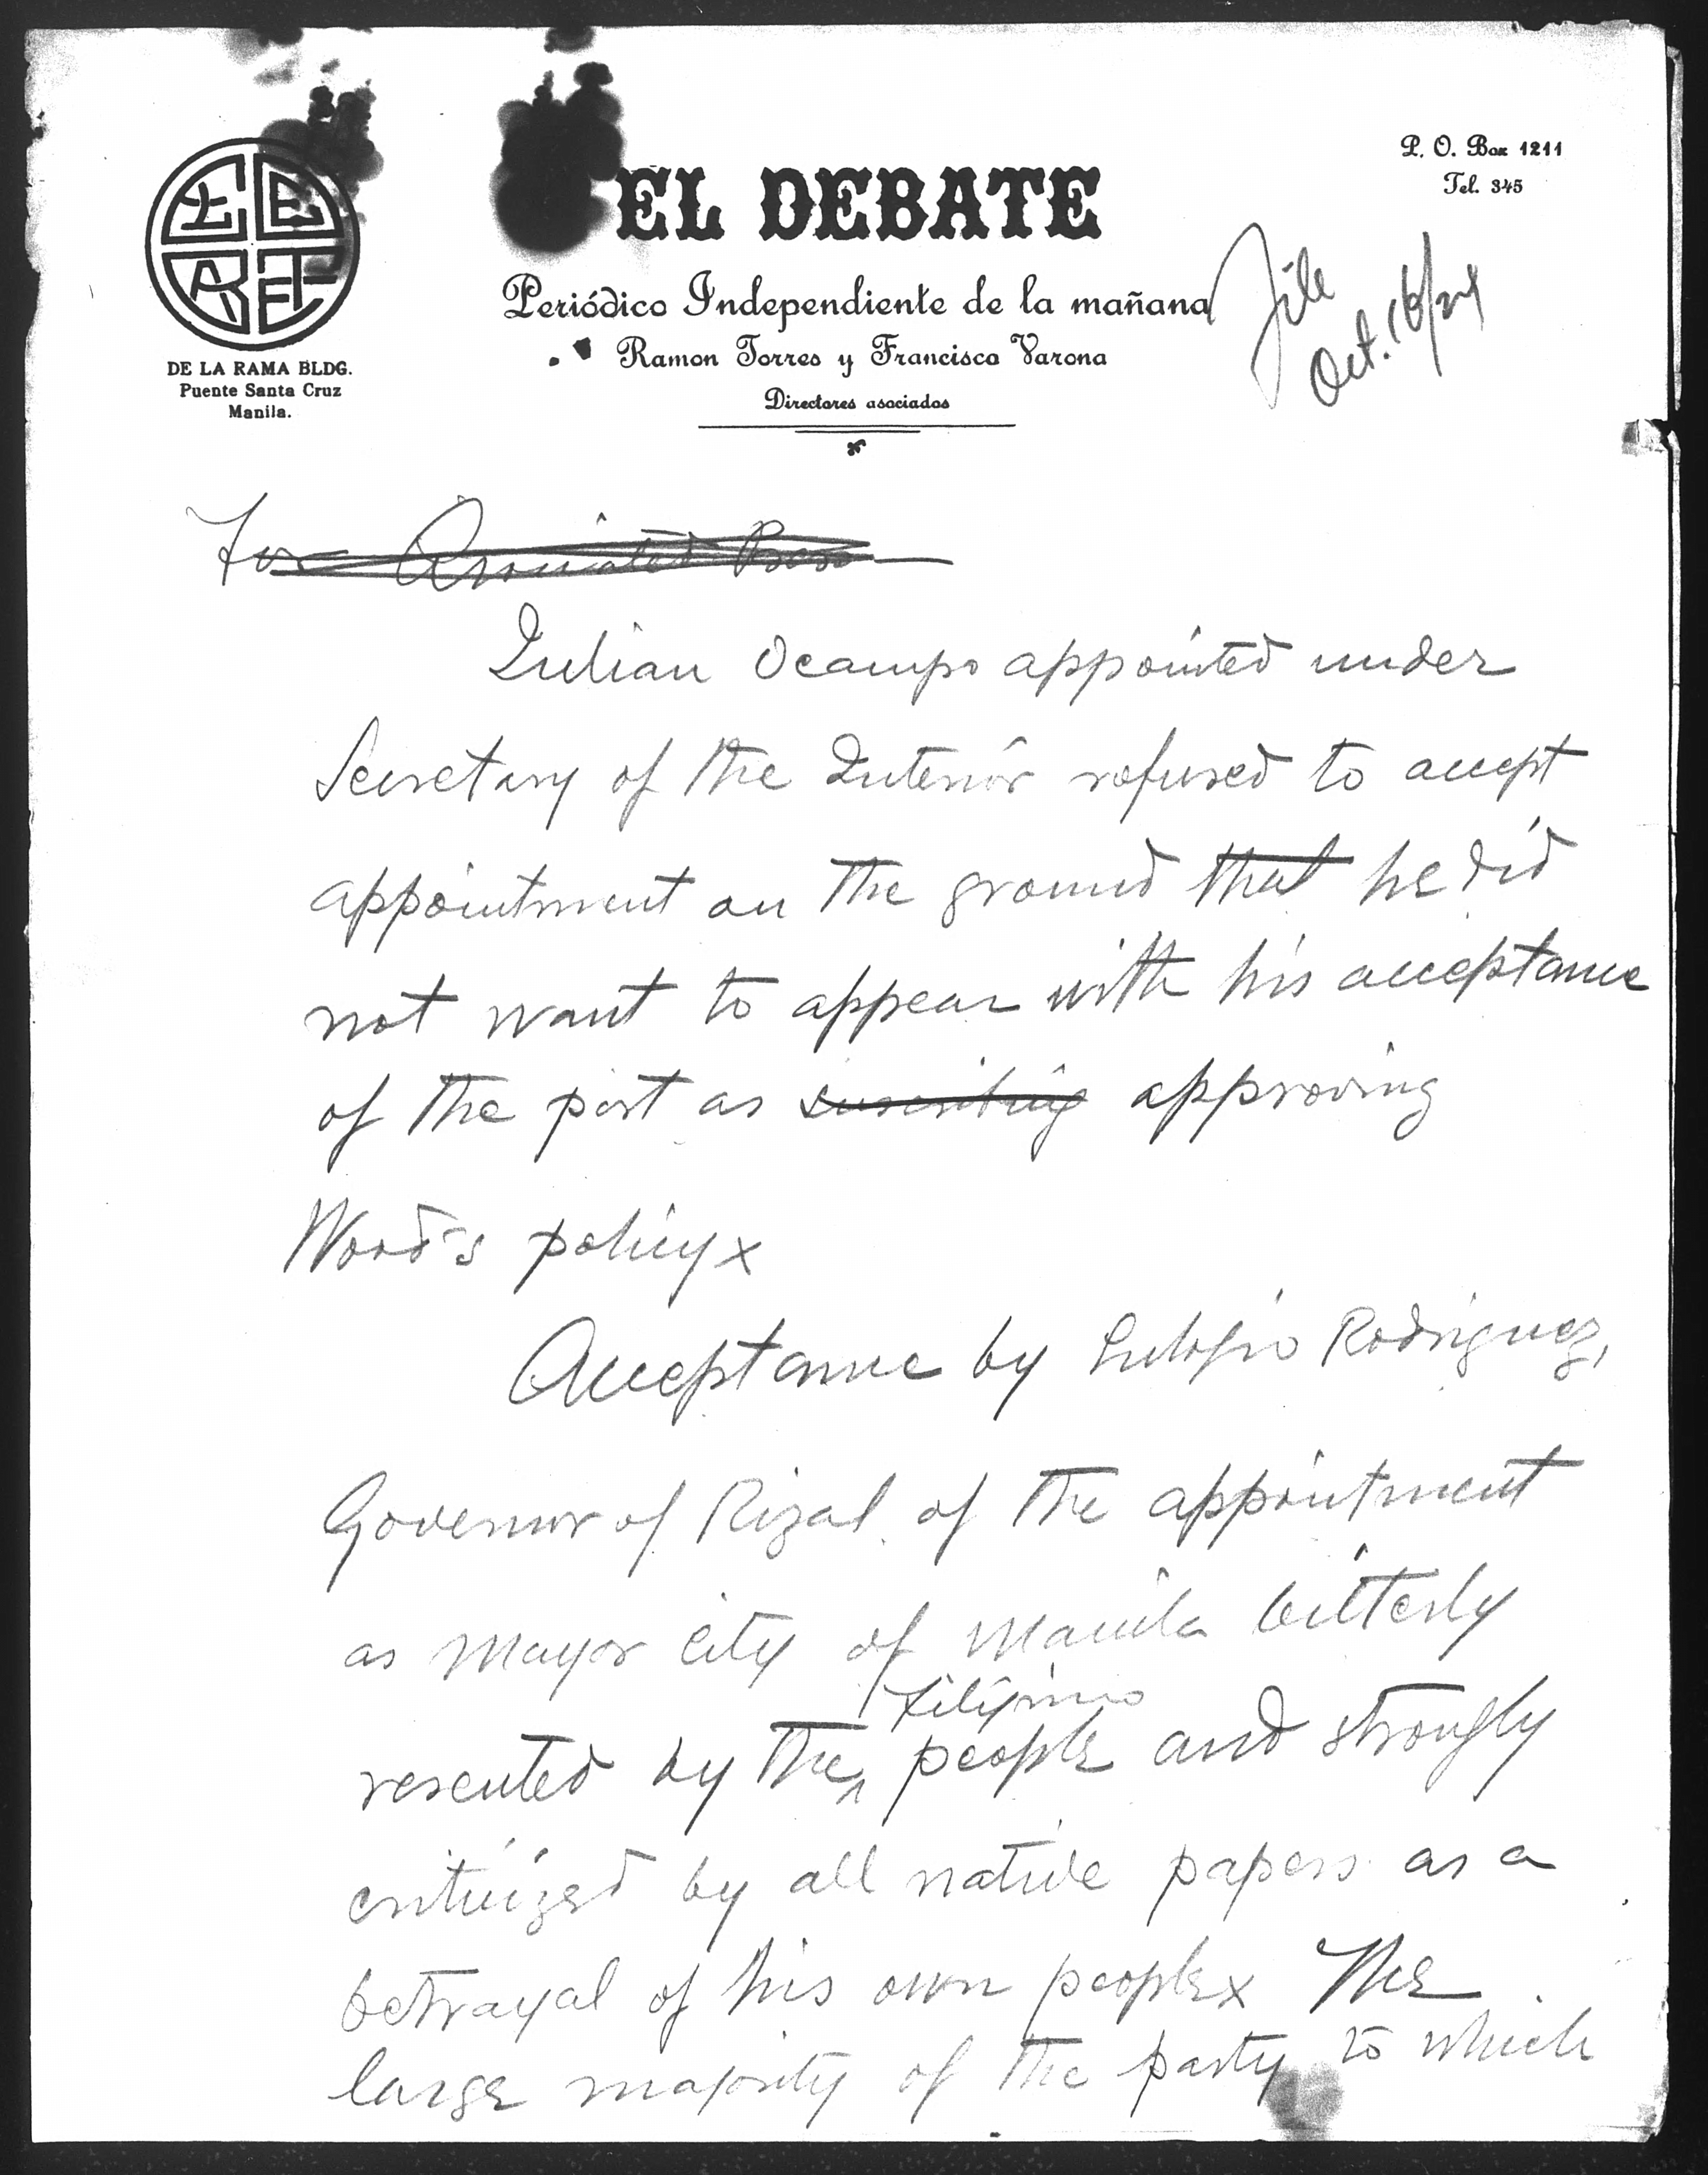 P. O. Box 1211
Tel. 345
EL DEBATE
Periódico Independiente de la mañana
Ramon Torres y Francisco Varona
Directores asociados
DE LA RAMA BLDG.
Puente Santa Cruz
Manila.
File
Oct. 16/24
For Associated Press
Julian Ocampo appointed under
Secretary of the Interior refused to accept
appointment on the ground that he did
not want to appear with his acceptance
of the post as suscribing approving
Wood's policy x
Acceptance by Eulogio Rodriguez,
Governor of Rizal of the appointment
as Mayor City of Manila bitterly
Filipino
resented by the people and strongly
criticized by all native papers as a
betrayal of his own people x The
large majority of the party to which